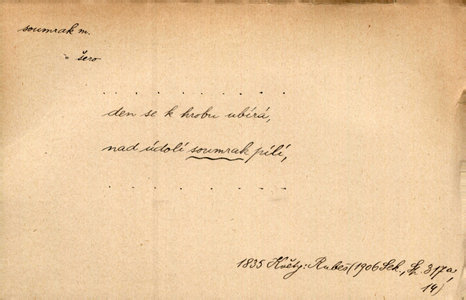 soumrak m.
= šero
. . . . . . . . . .
den se k hrobu ubírá,
nad údolí soumrak pílí,
. . . . . . . . . .
1835 Květy: Rubeš (1906 Sek., 317a,
14)